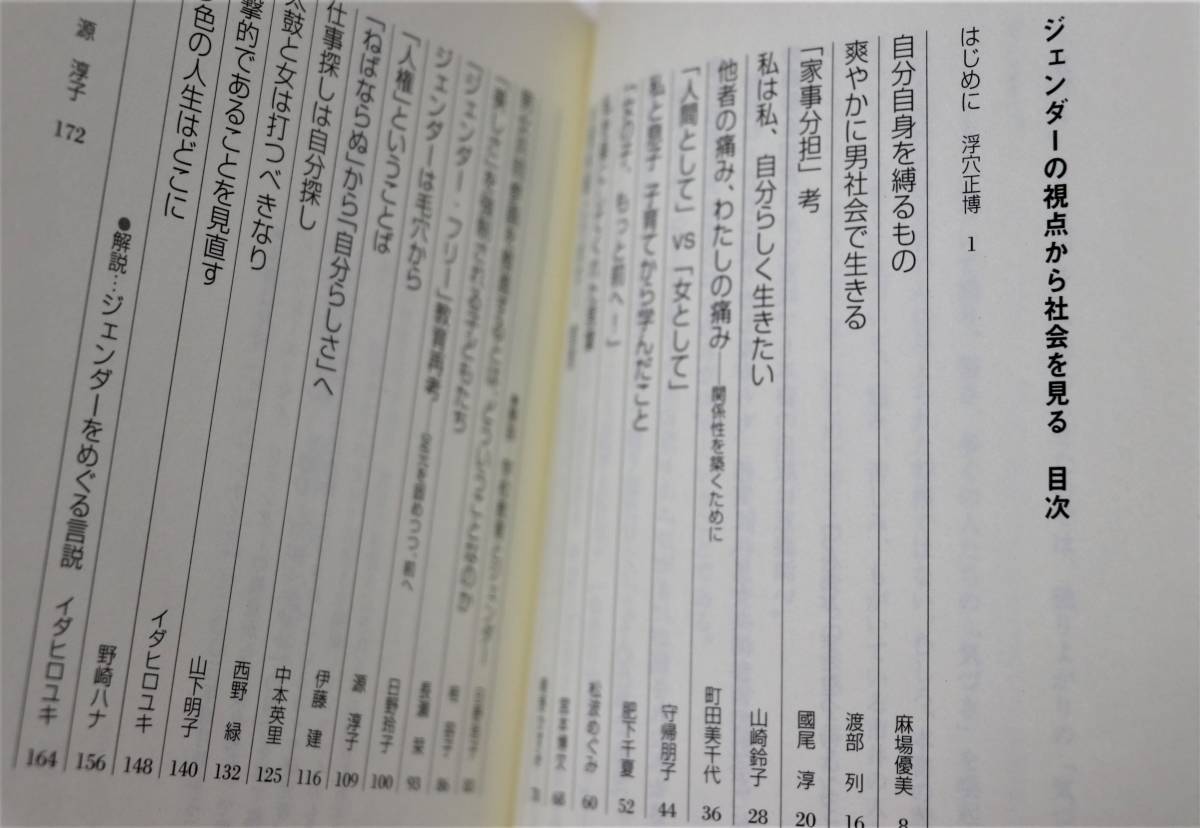 ジェンダーの視点から社会を見る 目次
はじめに 浮穴正博 1
自分自身を縛るもの 麻場優美 8
爽やかに男社会で生きる 渡部 列 16
「家事分担」考 國尾 淳 20
私は私、自分らしく生きたい 山崎鈴子 28
他者の痛み、わたしの痛み――関係性を築くために 町田美千代 36
「人間として」VS「女として」 守帰朋子 44
私と息子 子育てから学んだこと 肥下千夏 52
「女の子、もっと前へ!」 松波めぐみ 60
68
「美しさ」を強制される子どもたち 長瀬 栄 93
「ジェンダー・フリー」教育再考――足元を固めつつ、前へ 日野玲子 100
ジェンダーは毛穴から 源 淳子 109
「人権」ということば 伊藤 建 116
「ねばならぬ」から「自分らしさ」へ 中本英里 125
仕事探しは自分探し 西野 緑 132
太鼓と女は打つべきなり 山下明子 140
撃的であることを見直す イダヒロユキ 148
色の人生はどこに 野崎ハナ 156
●解説…ジェンダーをめぐる言説 イダヒロユキ 164
源 淳子 172